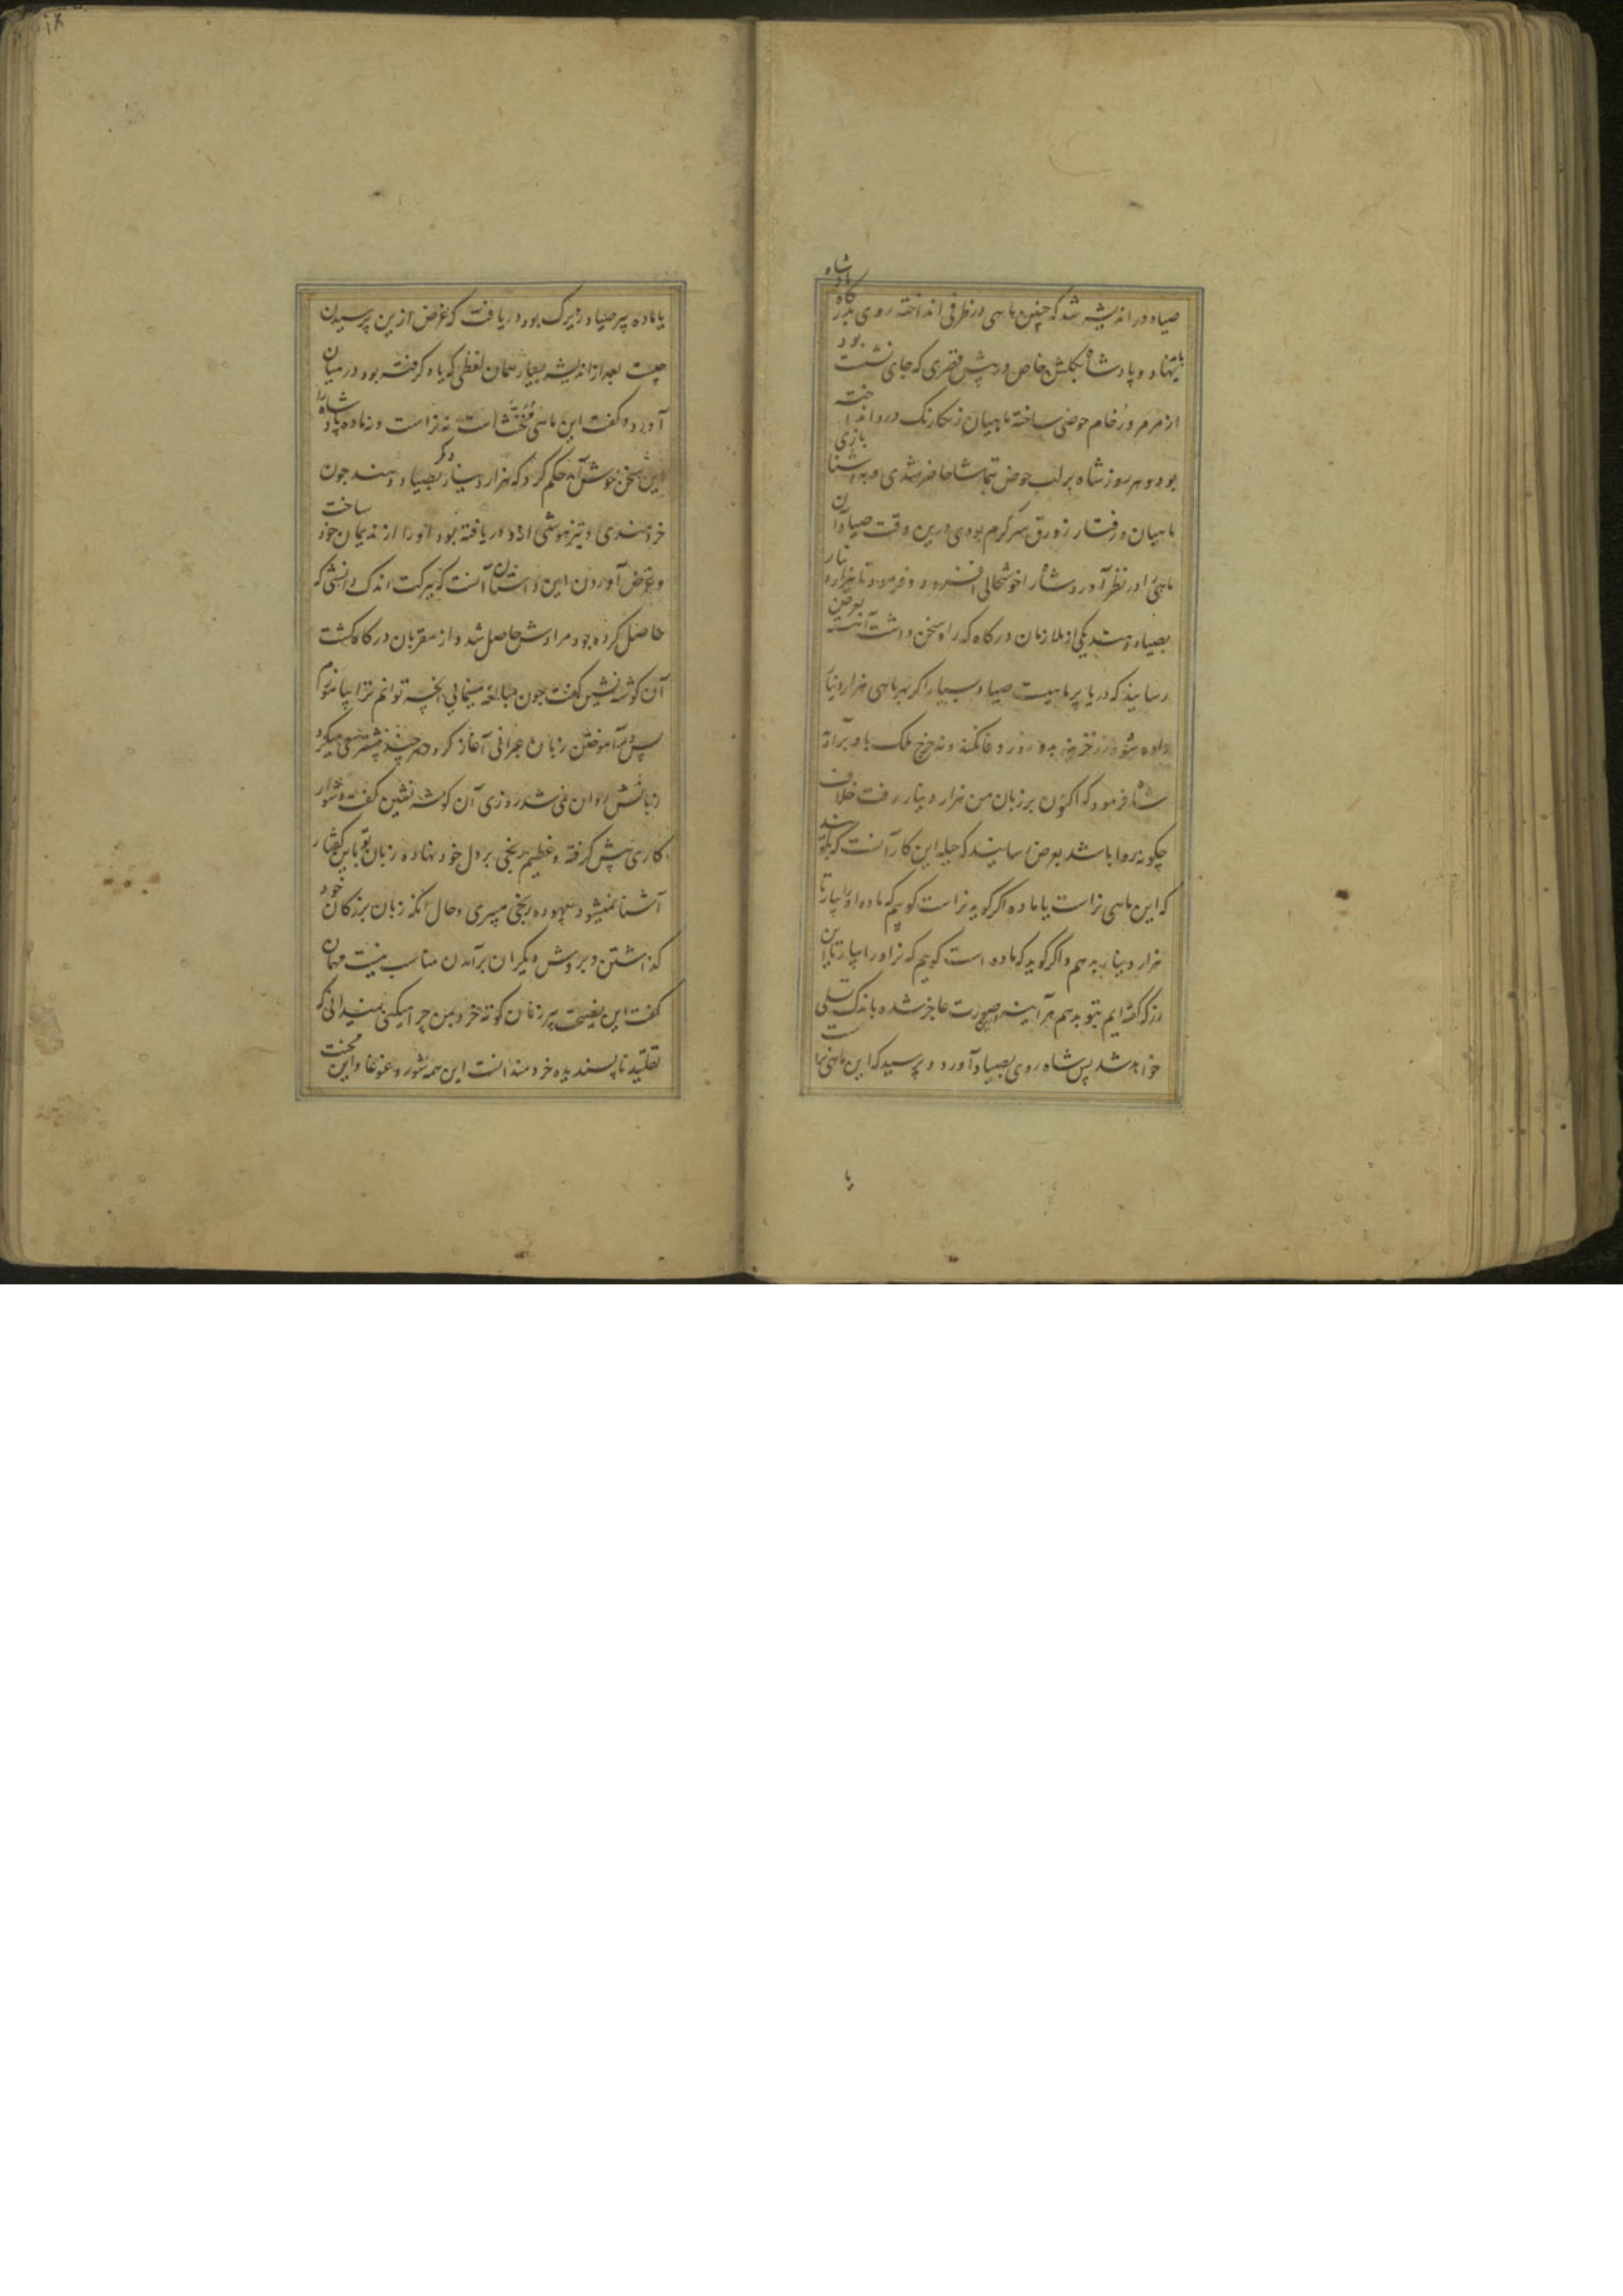 صیاد در اندیشه شد که چنین ماهی در ظرفی انداخته روی بدرگاه پادشاه
نهاد و پادشاه بگلشن خاص در پیش قصری که جای نشست بود
از مرمر و رخام حوضی ساخته ماهیان رنگارنگ درو انداخته
بود و هر روز شاه بر لب حوض تماشا حاضر شدی و به شنا بازی
ماهیان و رفتار زورق سرگرم بودی درین وقت صیاد آن
ماهی را در نظر آورد شاه را خوشحالی افزود و فرمود تا هزار دینار
بصیاد دهند یکی از ملازمان درگاه که راه سخن داشت آهسته بعرض
رسانید که دریا پر ماهیست صیاد بسیار اگر بهر ماهی هزار دینار
داده شود زر خزینه بده روز وفا نکند و نه خرج ملک باو برآید
شاه فرمود که اکنون بر زبان من هزار دینار رفت خلاف
چگونه روا باشد بعرض رسانیدند که حیله این کار آنست که بگو
که این ماهی نر است یا ماده اگر گوید نر است گوییم که ماده او را بیار تا
هزار دینار بدهم و اگر گوید که ماده است گویم که نر او را بیار تا این
زر که گفته ایم بتو بدهم هر آینه درین صورت عاجز شده باندک تسلی
خواهد شد پس شاه روی بصیاد آورد و پرسید که این ماهی نر است
یا
یا ماده پیر صیاد زیرک بود دریافت که غرض ازین پرسیدن
چیست بعد از اندیشه بسیار همان لفظی که یاد گرفته بود در میان
آورد و گفت این ماهی مخنث است نه نر است و نه ماده پادشاه را
این سخن خوش آمد حکم کرد که هزار دینار دیگر بصیاد دهند چون
خردمندی و تیزهوشی او دریافته بود او را از ندیمان خود ساخت
و غرض آوردن این داستان آنست که ببرکت اندک دانشی که
حاصل کرده بود مرادش حاصل شد و از مقربان درگاه گشت
آن گوشه نشین گفت چون مبالغه مینمایی آنچه توانم ترا بیاموزم
پس در آموختن زبان عبرانی آغاز کرد و هر چند بیشتر سعی میکرد
زبانش روان نمی شد روزی آن گوشه نشین گفت دشوار
کاری پیش گرفته و عظیم رنجی بر دل خود نهاده زبان تو باین گفتار
آشنا نمیشود بیهوده رنجی میبری و حال آنکه زبان بزرگان خود
گذاشتن و بر روش دیگران برآمدن مناسب نیست مهمان
گفت این نصیحت پیر زنان کوته خرد بمن چرا میکنی نمیدانی که
تقلید ناپسندیده خردمندانست این همه شور و غوغا و این محنت